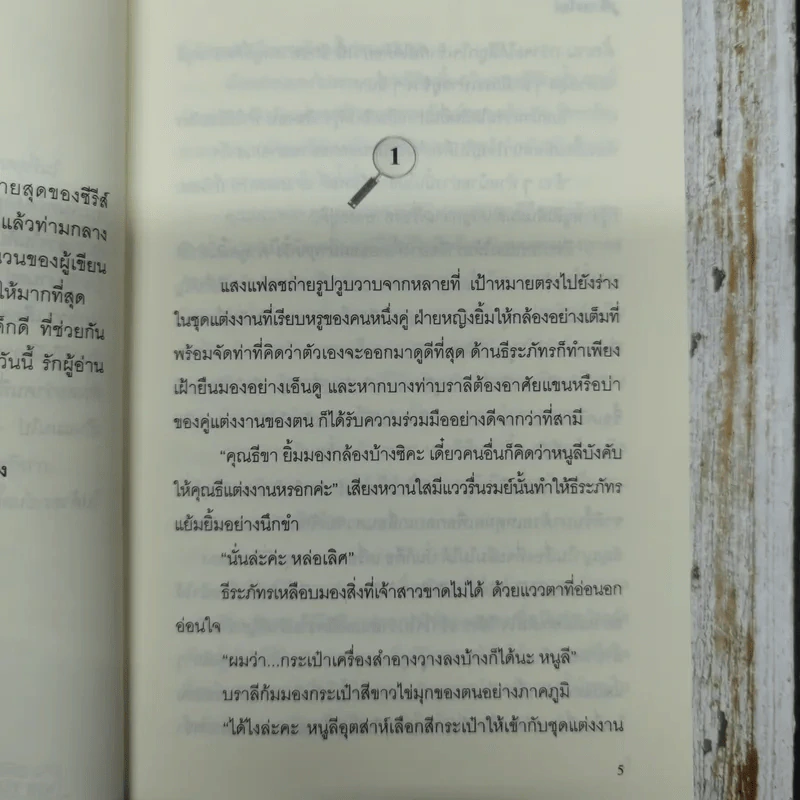 ายสุดของซีรีส์
แล้วท่ามกลาง
นวนของผู้เขียน
ให้มากที่สุด
ด็กดี ที่ช่วยกัน
วันนี้ รักผู้อ่าน
1
แสงแฟลชถ่ายรูปวูบวาบจากหลายที่ เป้าหมายตรงไปยังร่าง
ในชุดแต่งงานที่เรียบหรูของคนหนึ่งคู่ ฝ่ายหญิงยิ้มให้กล้องอย่างเต็มที่
พร้อมจัดท่าที่คิดว่าตัวเองจะออกมาดูดีที่สุด ด้านธีระภัทรก็ทำเพียง
เฝ้ายืนมองอย่างเอ็นดู และหากบางท่าบราลีต้องอาศัยแขนหรือบ่า
ของคู่แต่งงานของตน ก็ได้รับความร่วมมืออย่างดีจากว่าที่สามี
“คุณธีขา ยิ้มมองกล้องบ้างซิคะ เดี๋ยวคนอื่นก็คิดว่าหนูลีบังคับ
ให้คุณธีแต่งงานหรอกค่ะ” เสียงหวานใสมีแววรื่นรมย์นั้นทำให้ธีระภัทร
แย้มยิ้มอย่างนึกขำ
“นั่นล่ะค่ะ หล่อเลิศ”
ธีระภัทรเหลือบมองสิ่งที่เจ้าสาวขาดไม่ได้ ด้วยแววตาที่อ่อนอก
อ่อนใจ
“ผมว่า...กระเป๋าเครื่องสำอางวางลงบ้างก็ได้นะ หนูลี”
บราลีก้มมองกระเป๋าสีขาวไข่มุกของตนอย่างภาคภูมิ
“ได้ไงล่ะคะ หนูลีอุตส่าห์เลือกสีกระเป๋าให้เข้ากับชุดแต่งงาน
5